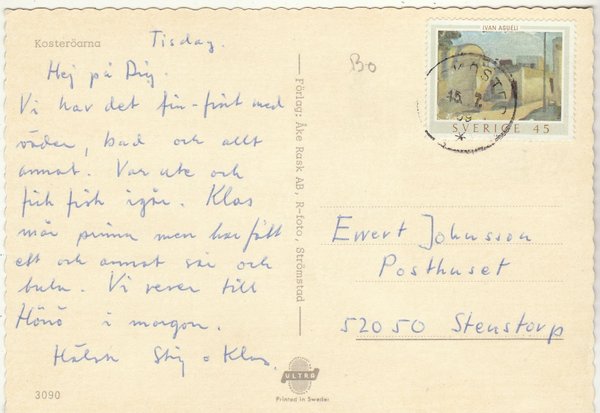 Kosteröarna
Tisdag.
Hej på Dig.
Vi har det fin-fint med
väder, bad och allt
annat. Var ute och
fick fisk igår. Klas
mår prima men har fått
ett och annat sår och
bula. Vi reser till
Hönö i morgon.
Hälsn Stig o Klas.
3090
Förlag: Åke Rask AB, R-foto, Strömstad
ULTRA
Printed in Sweden
Bo
IVAN AGUÉLI
SVERIGE 45
Ewert Johnsson
Posthuset
52050 Stenstorp